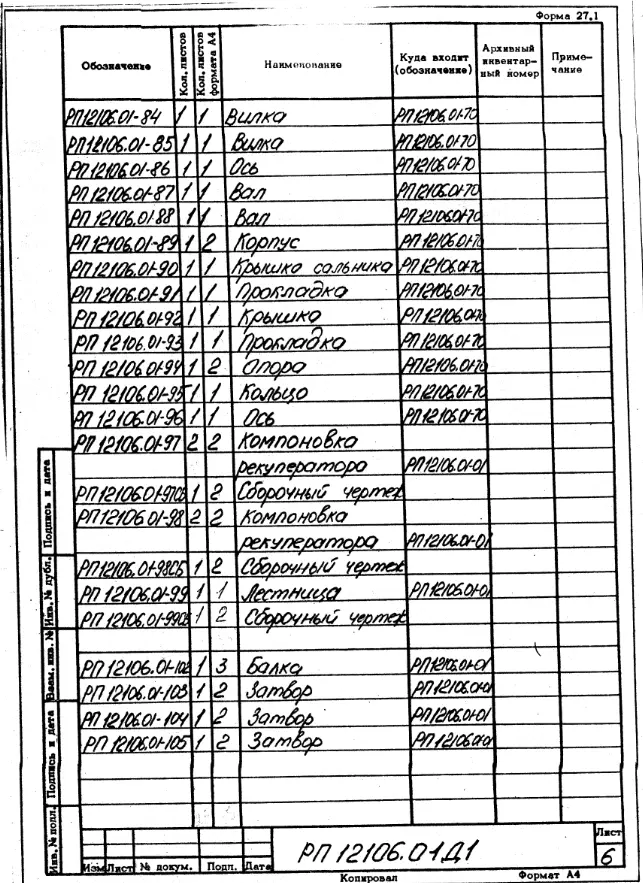 Форма 27.1
Обозначение Кол. листов Кол. листов формата А4 Наименование Куда входит (обозначение) Архивный инвентарный номер Примечание
РП12106.01-84 1 1 Вилка РП12106.01-70
РП12106.01-85 1 1 Вилка РП12106.01-70
РП12106.01-86 1 1 Ось РП12106.01-70
РП12106.01-87 1 1 Вал РП12106.01-70
РП12106.01-88 1 1 Вал РП12106.01-70
РП12106.01-89 1 2 Корпус РП12106.01-70
РП12106.01-90 1 1 Крышка сальника РП12106.01-70
РП12106.01-91 1 1 Прокладка РП12106.01-70
РП12106.01-92 1 1 Крышка РП12106.01-70
РП12106.01-93 1 1 Прокладка РП12106.01-70
РП12106.01-94 1 2 Опора РП12106.01-70
РП12106.01-95 1 1 Кольцо РП12106.01-70
РП12106.01-96 1 1 Ось РП12106.01-70
РП12106.01-97 2 2 Компоновка
рекуператора РП12106.01-01
РП12106.01-97СБ 1 2 Сборочный чертеж
РП12106.01-98 2 2 Компоновка
рекуператора РП12106.01-01
РП12106.01-98СБ 1 2 Сборочный чертеж
РП12106.01-99 1 1 Лестница РП12106.01-01
РП12106.01-99СБ 1 2 Сборочный чертеж
РП12106.01-102 1 3 Балка РП12106.01-01
РП12106.01-103 1 2 Затвор РП12106.01-01
РП12106.01-104 1 2 Затвор РП12106.01-01
РП12106.01-105 1 2 Затвор РП12106.01-01
Инв. № подл. Подпись и дата Взам. инв. № Инв. № дубл. Подпись и дата
РП12106.01Д1
Лист
6
Изм Лист № докум. Подп. Дата
Копировал Формат А4